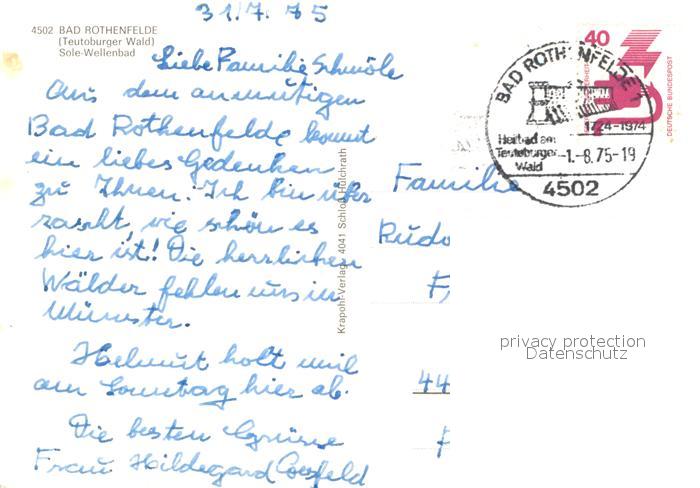 31/7. 75
4502 BAD ROTHENFELDE
(Teutoburger Wald)
Sole-Wellenbad
Liebe Familie Schmöle
Aus dem anmutigen
Bad Rothenfelde kommt
ein liebes Gedenken
zu Ihnen. Ich bin über
rascht, wie schön es
hier ist! Die herrlichen
Wälder fehlen uns in
Münster.
Helmut holt mich
am Sonntag hier ab.
Die besten Grüsse
Frau Hildegard Coesfeld
Krapohl-Verlag, 4041 Schloß Hülchrath
Familie
Rudo
F
44
40
DEUTSCHE BUNDESPOST
BAD ROTHENFELDE
1724-1974
Heilbad am
Teutoburger
Wald
-1.-8.75-19
4502
privacy protection
Datenschutz